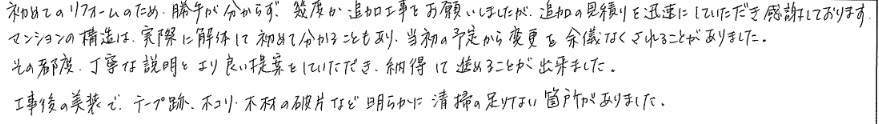 初めてのリフォームのため、勝手が分からず、幾度か追加工事をお願いしましたが、追加の見積りを迅速にしていただき感謝しております。
マンションの構造は、実際に解体して初めて分かることもあり、当初の予定から変更を余儀なくされることがありました。
その都度、丁寧な説明とより良い提案をしていただき、納得して進めることが出来ました。
工事後の美装で、テープ跡、ホコリ、木材の破片など明らかに清掃の足りない箇所がありました。